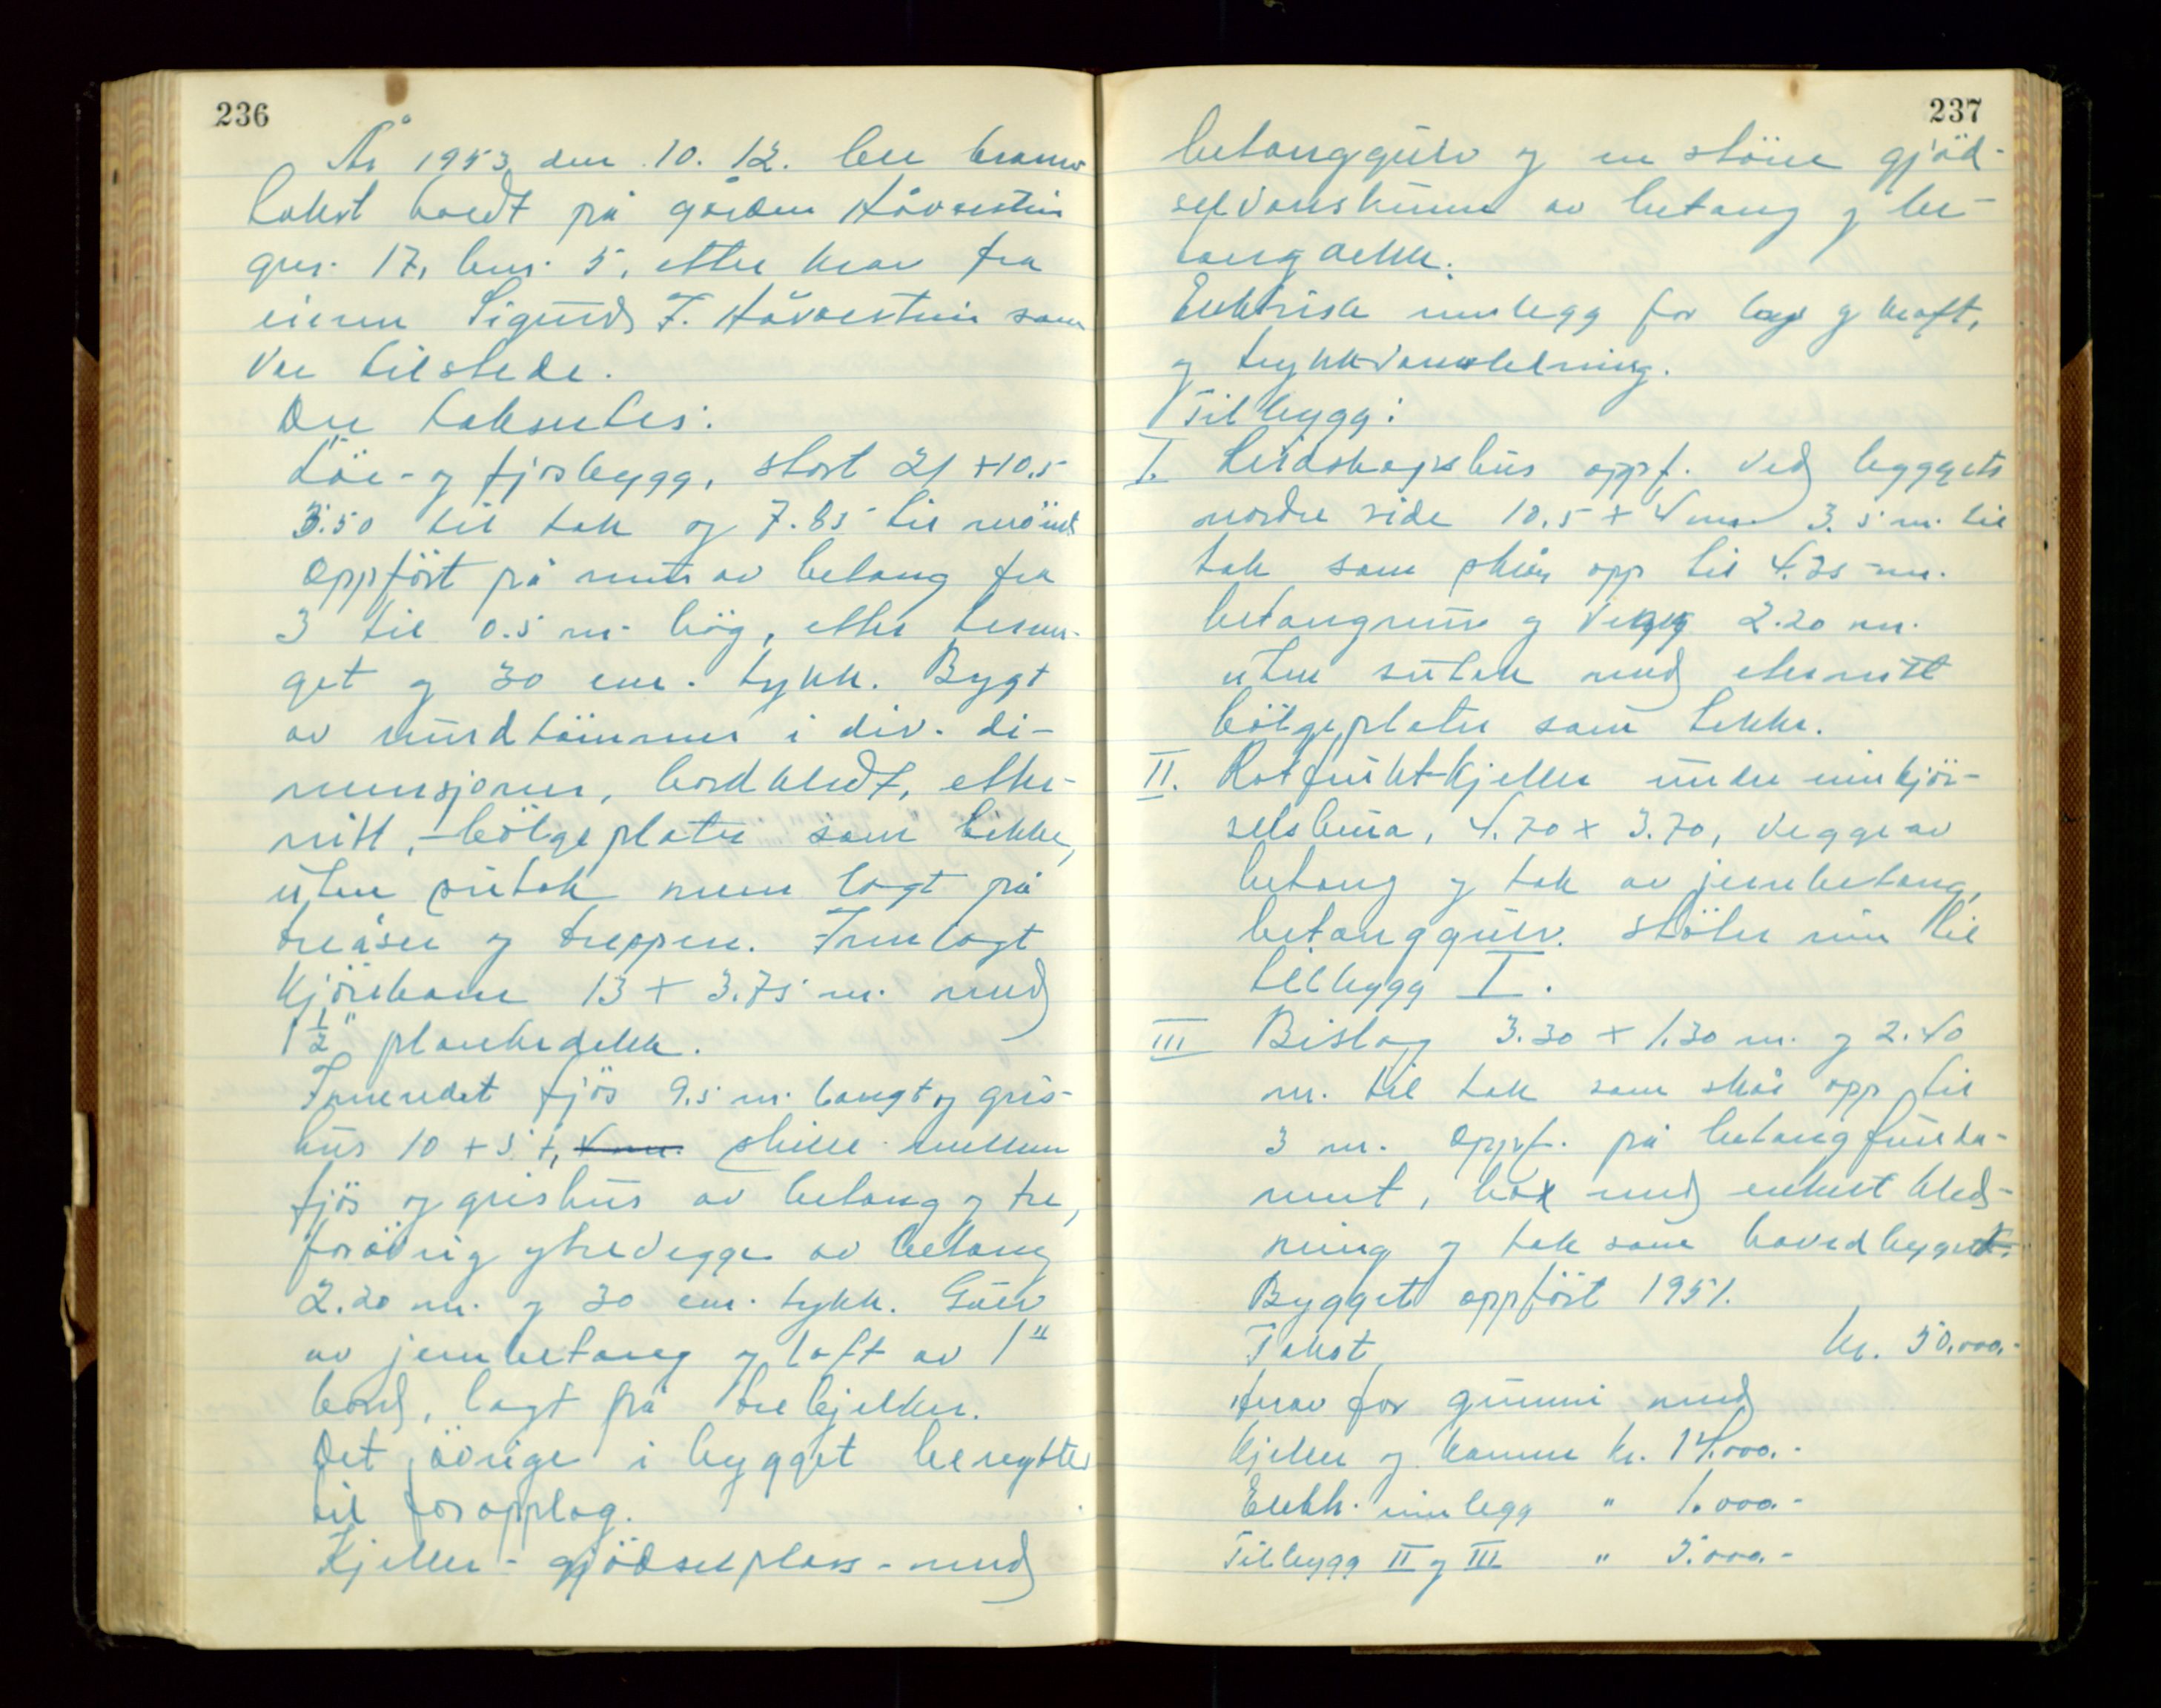 236
År 1953 den 10. 12. ble brann
takst holdt på gården Håvarstein
gnr. 17, bnr. 5, etter krav fra
eieren Sigurd J. Håvarstein som
var tilstede.
Der takseres:
Löe- og fjösbygg, stort 21 x 10.5
3.50 til tak og 7.85 til möne
Oppfört på mur av betong fra
3 til 0.5 m. hög, etter terren-
get og 30 cm. tykk. Bygt
av rundtömmer i div. di-
mensjoner, bordkledt, eter-
nitt,-bölgeplater som tekke,
uten sutak men lagt på
treåser og treppen. Innlagt
Kjörebane 13 x 3.75 m. med
1 1/2" plankedekk.
Innredet fjös 9.5 m. langt og gris-
hus 10 x 5 x, 4 m. skille mellom
fjös og grishus av betong og tre,
forövrig ytrevegge av betong
2.20 m. og 30 cm. tykk. Gulv
av jernbetong og loft av 1"
bord, lagt på trebjelker.
Det övrige i bygget benyttes
til foropplag.
Kjeller - gjödselplass - med
237
betonggulv og en större gjöd-
selvanskum av betong og be-
tongdekk.
Elektrisk innlegg for lys og kraft,
og trykkvannsledning.
Tilbygg:
I. Reidskapshus oppf. ved byggets
nordre side 10.5 x 4 m. 3.5 m. til
tak som skrår opp til 4.25 m.
betongmur og vegg 2.20 m.
uten sutak med eternitt
bölgeplater som tekke.
II. Rotfrukt-kjeller under innkjör-
selsbrua, 4.70 x 3.70, vegge av
betong og tak av jernbetong,
betonggulv. Stöter inn til
tilbygg I.
III Bislag 3.30 x 1.30 m. og 2.40
m. til tak som skrår opp til
3 m. Oppf. på betongfunda-
ment, med enkelt kled-
ning og tak som hovedbygget.
Bygget oppfört 1951.
Takst kr. 50.000.-
Herav for grunnmur med
Kjeller og kummer kr. 14.000.-
Elekk. innlegg " 1.000.-
Tilbygg II og III " 5.000.-